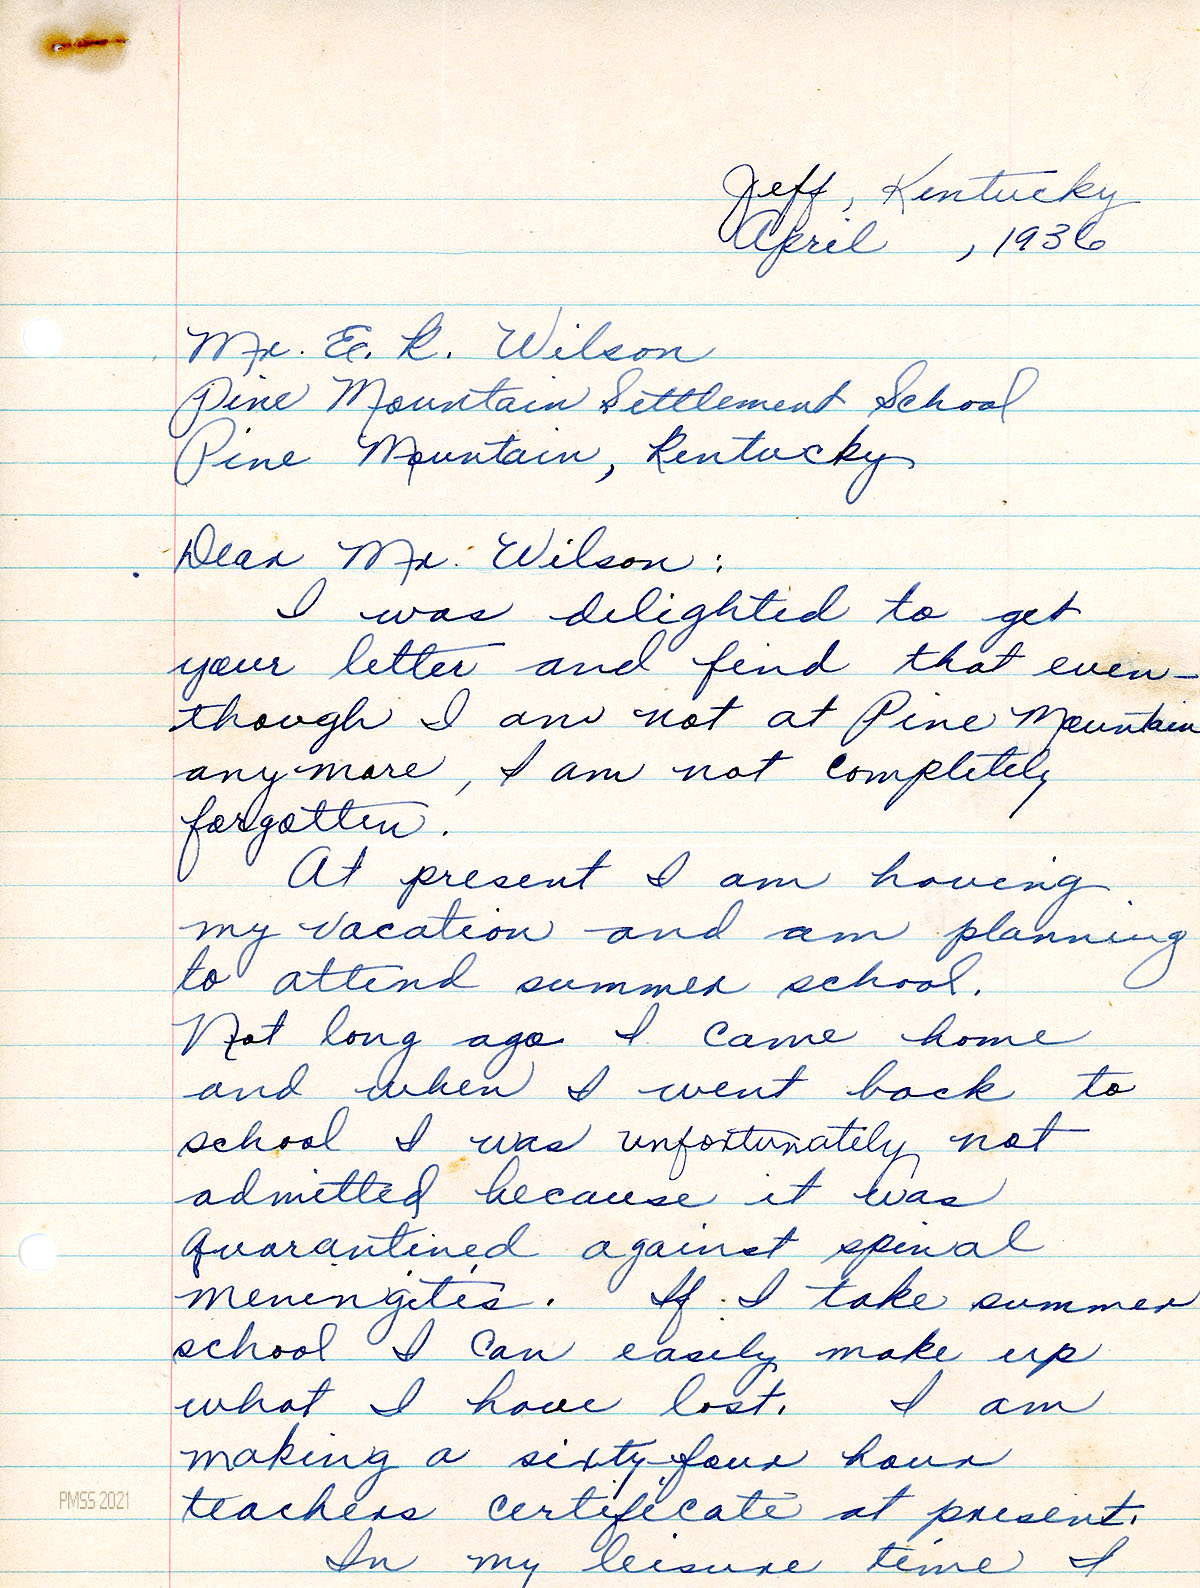 Jeff, Kentucky
April , 1936
Mr. E. R. Wilson
Pine Mountain Settlement School
Pine Mountain, Kentucky
Dear Mr. Wilson:
I was delighted to get
your letter and find that even-
though I am not at Pine Mountain
anymore, I am not completely
forgotten.
At present I am having
my vacation and am planning
to attend summer school.
Not long ago I came home
and when I went back to
school I was unfortunately not
admitted because it was
quarantined against spinal
meningites. If I take summer
school I can easily make up
what I have lost. I am
making a sixty-four hour
teachers certificate at present.
In my leisure time I
PMSS 2021